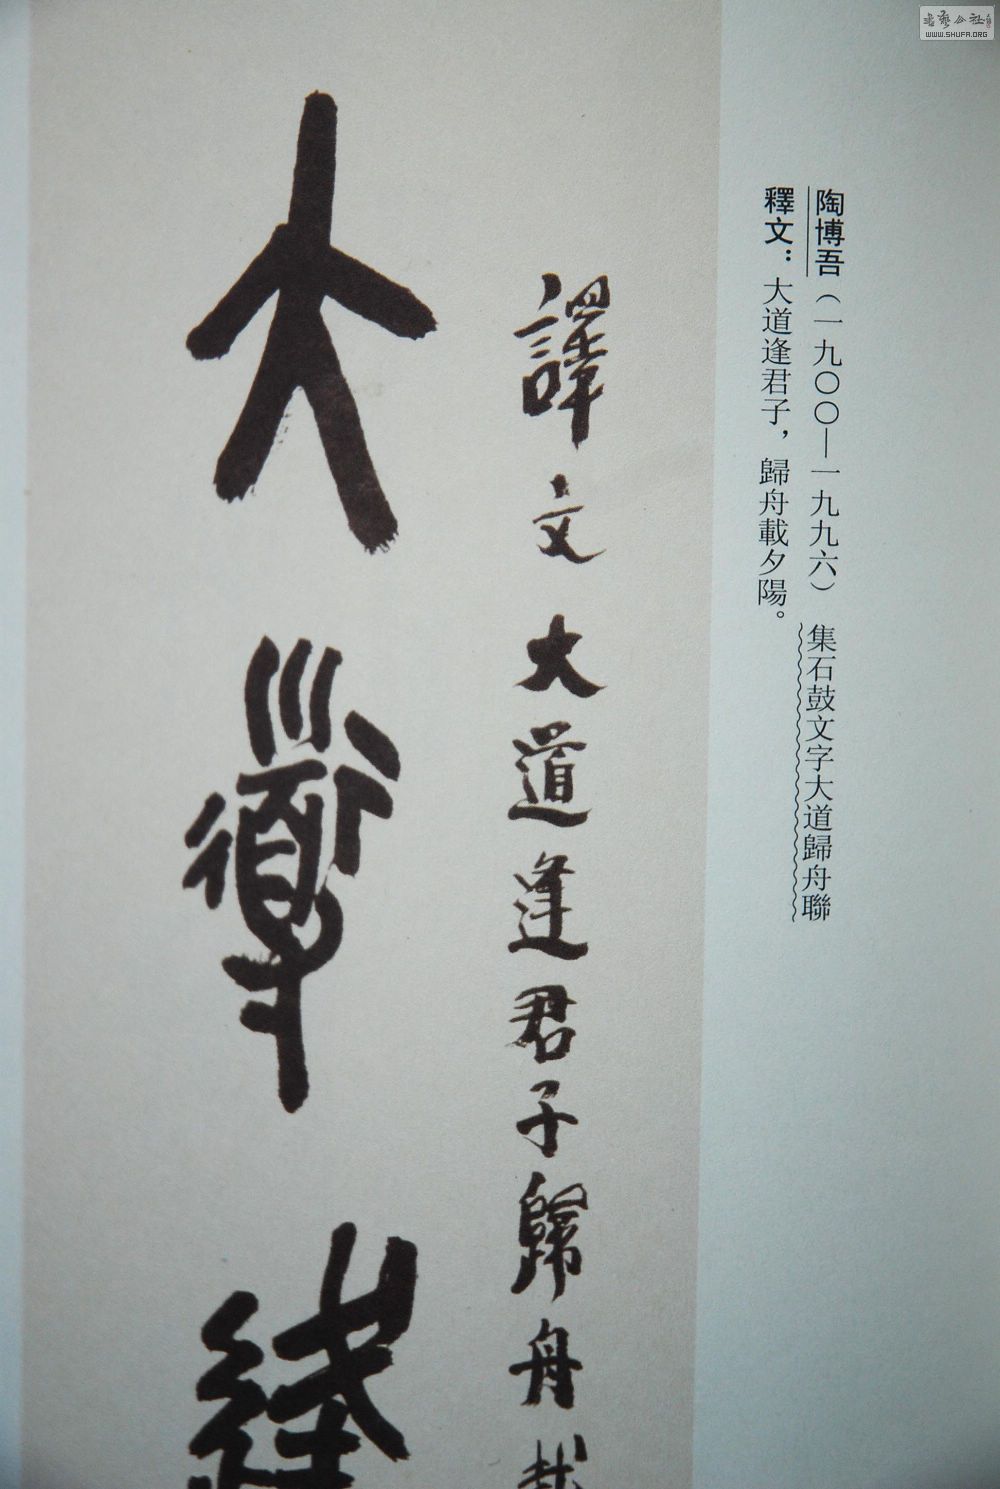 陶博吾（一九〇〇—一九九六） 集石鼓文字大道歸舟聯
釋文：大道逢君子，歸舟載夕陽。
譯文大道逢君子歸舟載
大道
WWW.SHUFA.ORG